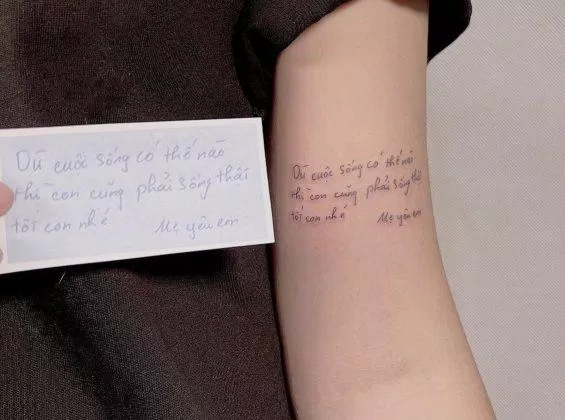 Dù cuộc sống có thế nào
thì con cũng phải sống thật
tốt con nhé
Mẹ yêu em
Dù cuộc sống có thế nào
thì con cũng phải sống thật
tốt con nhé
Mẹ yêu em